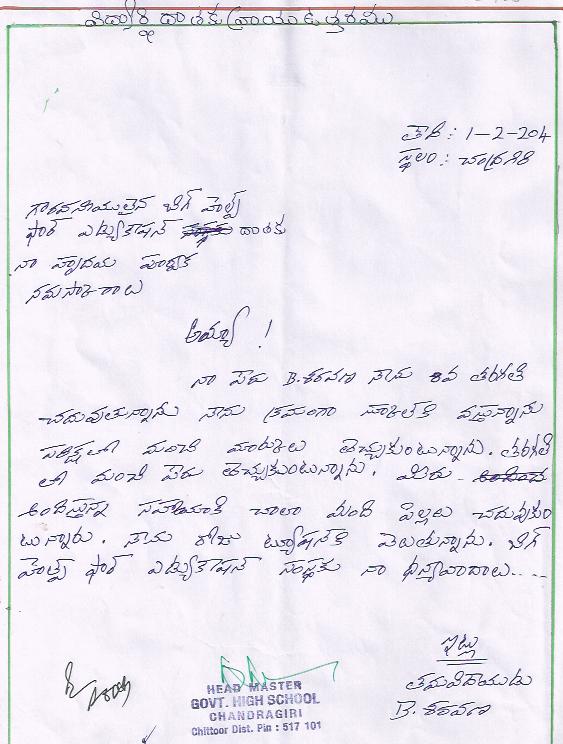 విద్యార్థి దాతకు వ్రాయు ఉత్తరము
తేది : 1-2-204
స్థలం : చంద్రగిరి
గౌరవనీయులైన బిగ్ హెల్ప్
ఫర్ ఎడ్యుకేషన్ దాతకు
నా హృదయ పూర్వక
నమస్కారాలు
అయ్యా !
నా పేరు B. శరవణ నేను 8వ తరగతి
చదువుతున్నాను నేను క్రమంగా స్కూల్‌కి వస్తున్నాను
పరీక్షలో మంచి మార్కులు తెచ్చుకుంటున్నాను. తరగతి
లో మంచి పేరు తెచ్చుకుంటున్నాను. మీరు
అందిస్తున్న సహాయంకి చాలా మంది పిల్లలు చదువుకుం
టున్నారు. నేను రోజు ట్యూషన్‌కి వెలుతున్నాను. బిగ్
హెల్ప్ ఫర్ ఎడ్యుకేషన్ సంస్థకు నా ధన్యావాదాలు....
ఇట్లు
తమవిదేయుడు
B. శరవణ
HEAD MASTER
GOVT. HIGH SCHOOL
CHANDRAGIRI
Chittoor Dist. Pin : 517 101